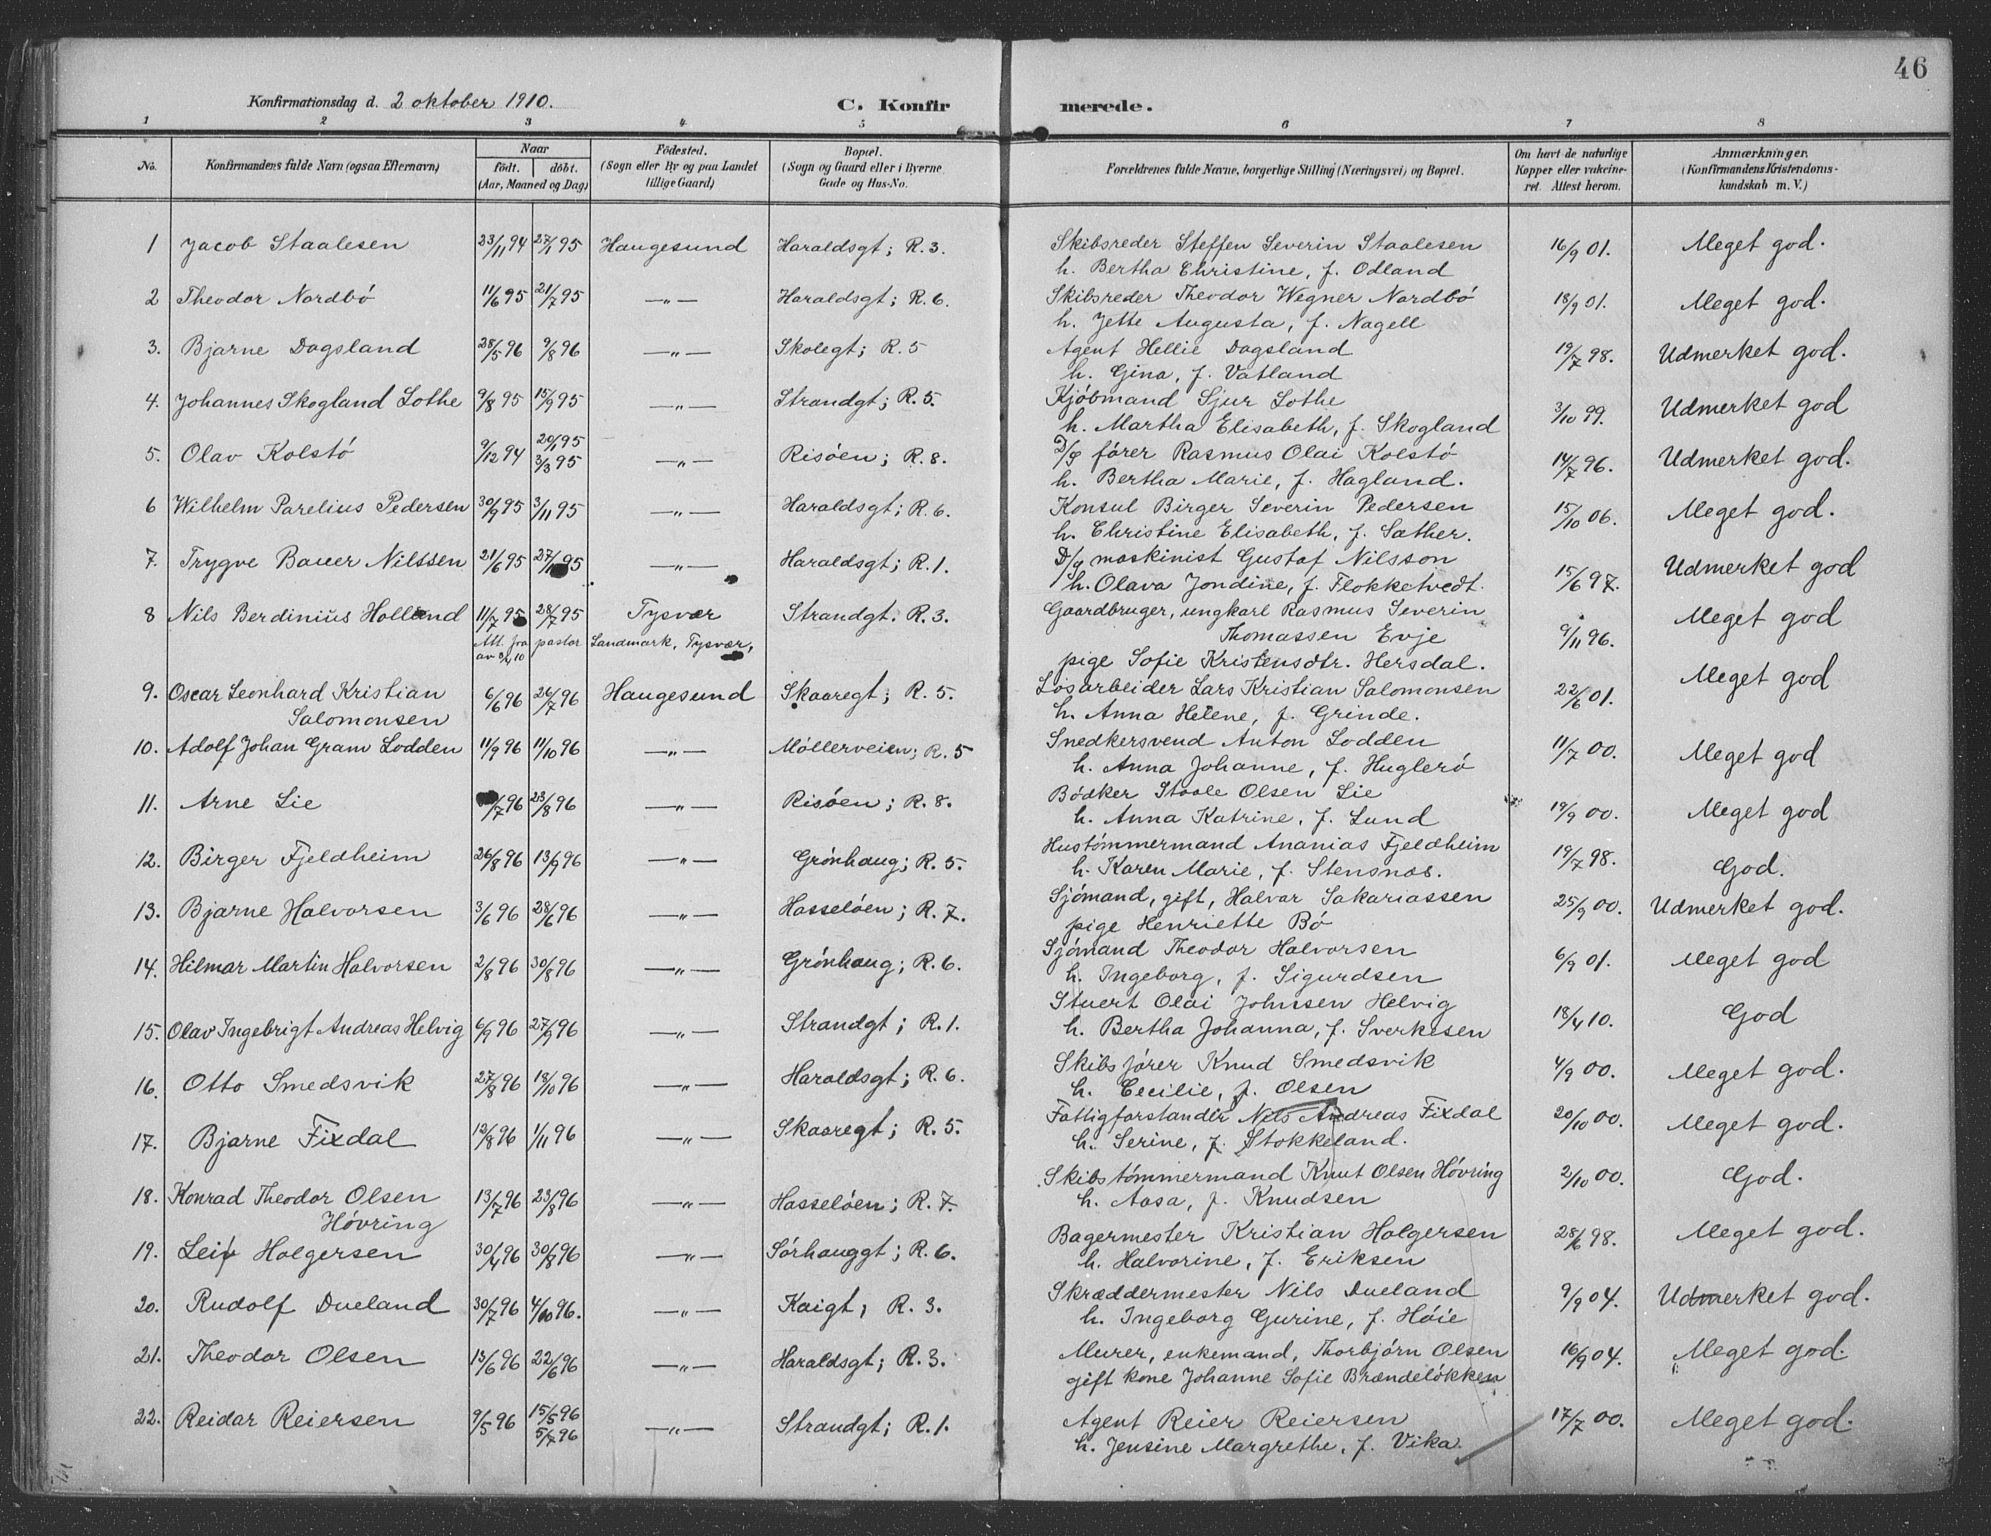 46
Konfirmationsdag d. 2 oktober 1910. C. Konfirmerede.
1 2 3 4 5 6 7 8
No. Konfirmandens fulde Navn (ogsaa Efternavn) Naar födt. döbt. (Aar, Maaned og Dag) Födested. (Sogn eller By og paa Landet tillige Gaard) Bopæl. (Sogn og Gaard eller i Byerne Gade og Hus-No. Forældrenes fulde Navne, borgerlige Stilling (Næringsvei) og Bopæl. Om havt de naturlige Kopper eller vakcineret. Attest herom. Anmærkninger. (Konfirmandens Kristendomskundskab m. V.)
1 Jacob Staalesen 23/11 94 27/1 95 Haugesund Haraldsgt; R. 3. Skibsreder Steffen Severin Staalesen 16/9 01. Meget god.
h. Bertha Christine, f. Odland
2 Theodor Nordbö 11/6 95 21/7 95 —„— Haraldsgt; R. 6. Skibsreder Theodor Wegner Nordbö 18/9 01. Meget god.
h. Jette Augusta, f. Nagell
3. Bjarne Dagsland 28/5 96 9/8 96 —„— Skolegt; R. 5 Agent Hellie Dagsland 19/7 98. Udmerket god.
h. Gina, f. Vatland
4. Johannes Skogland Lothe 9/8 95 15/9 95 —„— Strandgt; R. 5. Kjöbmand Sjur Lothe 3/10 99. Udmerket god
h. Martha Elisabeth, f. Skogland
5. Olav Kolstö 9/12 94 20/1 95 3/3 95 —„— Risöen; R. 8. D/s förer Rasmus Olai Kolstö 14/7 96. Udmerket god.
h. Bertha Marie, f. Hagland.
6 Wilhelm Parelius Pedersen 30/9 95 3/11 95 —„— Haraldsgt; R. 6. Konsul Birger Severin Pedersen 15/10 06. Meget god.
h. Christine Elisabeth, f. Sæther.
7. Trygve Bauer Nilssen 21/6 95 27/ 95 —„— Haraldsgt; R. 1. D/s maskinist Gustaf Nilsson 15/6 97. Udmerket god
h. Olava Jondine, f. Flokketvedt.
8 Nils Berdinius Holland 11/7 95 28/7 95 Tysvær Strandgt. R. 3. Gaardbruger, ungkarl Rasmus Severin Meget god
Att. fra pastor Landmark, Tysvær, Thomassen Evje 9/11 96.
av 10 pige Sofie Kristensdtr. Hersdal.
9. Oscar Leonhard Kristian 6/6 96 26/7 96 Haugesund Skaaregt; R. 5. Lösarbeider Lars Kristian Salomonsen 22/6 01. Meget god
Salomonsen h. Anna Helene, f. Grinde.
10. Adolf Johan Gram Lodden 11/9 96 11/10 96 —„— Möllerveien; R. 5 Snedkersvend Anton Lodden 11/7 00. Meget god
h. Anna Johanne, f. Huglerö
11. Arne Lie /7 96 23/8 96 —„— Risöen; R. 8. Bödker Staale Olsen Lie 19/9 00. Meget god
h. Anna Katrine, f. Lund
12. Birger Fjeldheim 26/8 96 13/9 96 —„— Grönhaug; R. 5. Hustömmermand Ananias Fjeldheim 19/7 98. God.
h. Karen Marie, f. Stensnæs.
13. Bjarne Halvorsen 3/6 96 28/6 96 —„— Hasselöen; R. 7. Sjömand, gift, Halvar Sakariassen 25/9 00. Udmerket god.
pige Henriette Bö
14. Hilmar Martin Halvorsen 2/8 96 30/8 96 —„— Grönhaug; R. 6. Sjömand Theodor Halvorsen 6/9 01. Meget god
h. Ingeborg, f. Sigurdsen
15. Olav Ingebrigt Andreas Helvig 6/9 96 27/9 96 —„— Strandgt; R. 1. Stuert Olai Johnsen Helvig 18/4 10. God
h. Bertha Johanna, f. Sverkesen
16. Otto Smedsvik 27/8 96 18/10 96 —„— Haraldsgt; R. 6. Skibsförer Knud Smedsvik 4/9 00. Meget god.
h. Cecilie, f. Olsen
17. Bjarne Fixdal 12/8 96 1/11 96 —„— Skaaregt; R. 5. Fattigforstander Nils Andreas Fixdal 20/10 00. Meget god.
h. Serine, f. Stokkeland.
18. Konrad Theodor Olsen 13/7 96 23/8 96 —„— Hasselöen; R. 7. Skibstömmermand Knut Olsen Hövring 2/10 00. God.
Hövring h. Aasa, f. Knudsen
19. Leif Holgersen 30/4 96 30/8 96 —„— Sörhauggt; R. 6. Bagermester Kristian Holgersen 28/6 98. Meget god.
h. Halvorine, f. Eriksen
20. Rudolf Dueland 30/7 96 4/10 96. —„— Kaigt; R. 3. Skræddermester Nils Dueland 9/9 04. Udmerket god.
h. Ingeborg Gurine, f. Höie
21. Theodor Olsen 13/6 96 22/6 96 —„— Haraldsgt; R. 3. Murer, enkemand, Thorbjörn Olsen 16/9 04. Meget god.
gift kone Johanne Sofie Brændelökken
22. Reidar Reiersen 9/5 96 15/5 96 5/7 96 —„— Strandgt; R. 1. Agent Reier Reiersen 17/7 00. Meget god.
h. Jensine Margrethe, f. Vika.